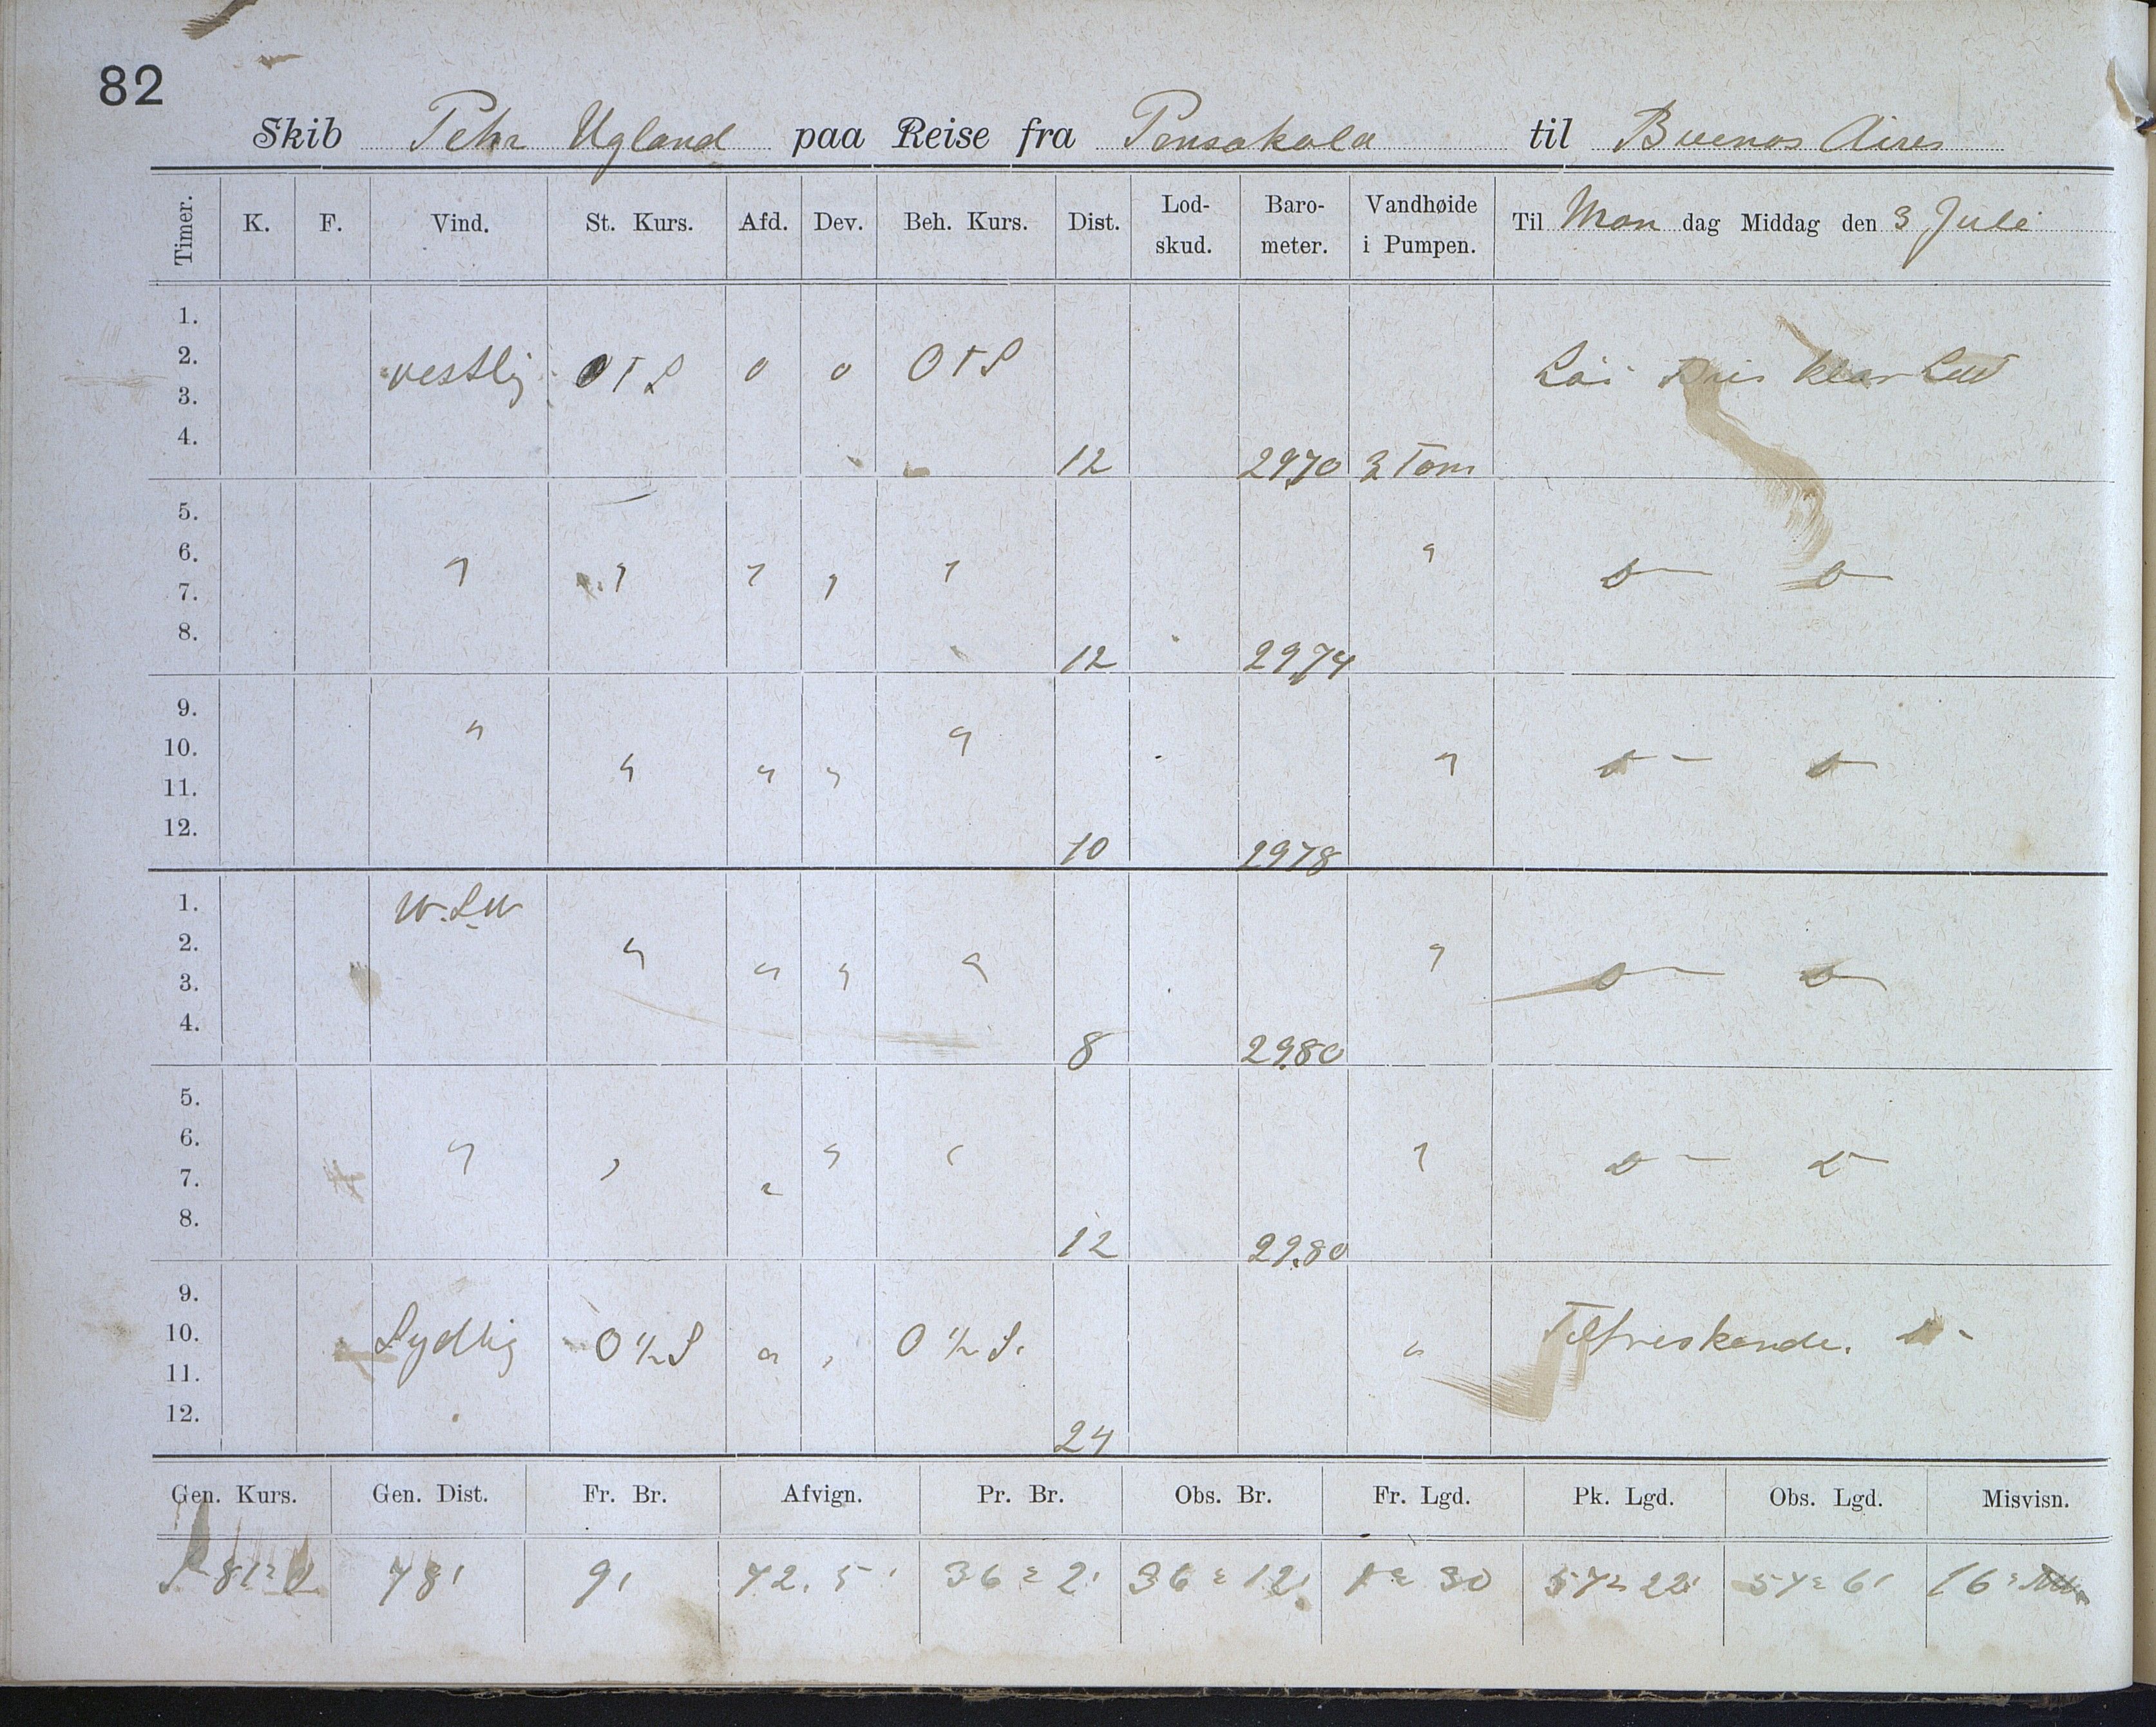 82
Skib Pehr Ugland paa Reise fra Pensakola til Buenos Aires
Timer. K. F. Vind. St. Kurs. Afd. Dev. Beh. Kurs. Dist. Lod-skud. Baro-meter. Vandhøide i Pumpen. Til Man dag Middag den 3 Juli
1.
2. vestlig OTS o o OTS Klar Luft
3.
4. 12 2970 3 Tom
5.
6. " " " " " " o— o—
7.
8. 12 2974
9.
10. " " " " " " o— o
11.
12. 10 2978
1. W.SW
2. " " " " " o— o—
3.
4. 8 2980
5.
6. " " " " " " o— o—
7.
8. 12 29.80
9.
10. Sydlig O ½ S " " O ½ S. " Tilfriskende. o-
11.
12. 24
Gen. Kurs. Gen. Dist. Fr. Br. Afvign. Pr. Br. Obs. Br. Fr. Lgd. Pk. Lgd. Obs. Lgd. Misvisn.
S 81° O 78' 9' 72.5' 36° 2' 36° 12' 1° 30 57° 22' 57° 6' 16°